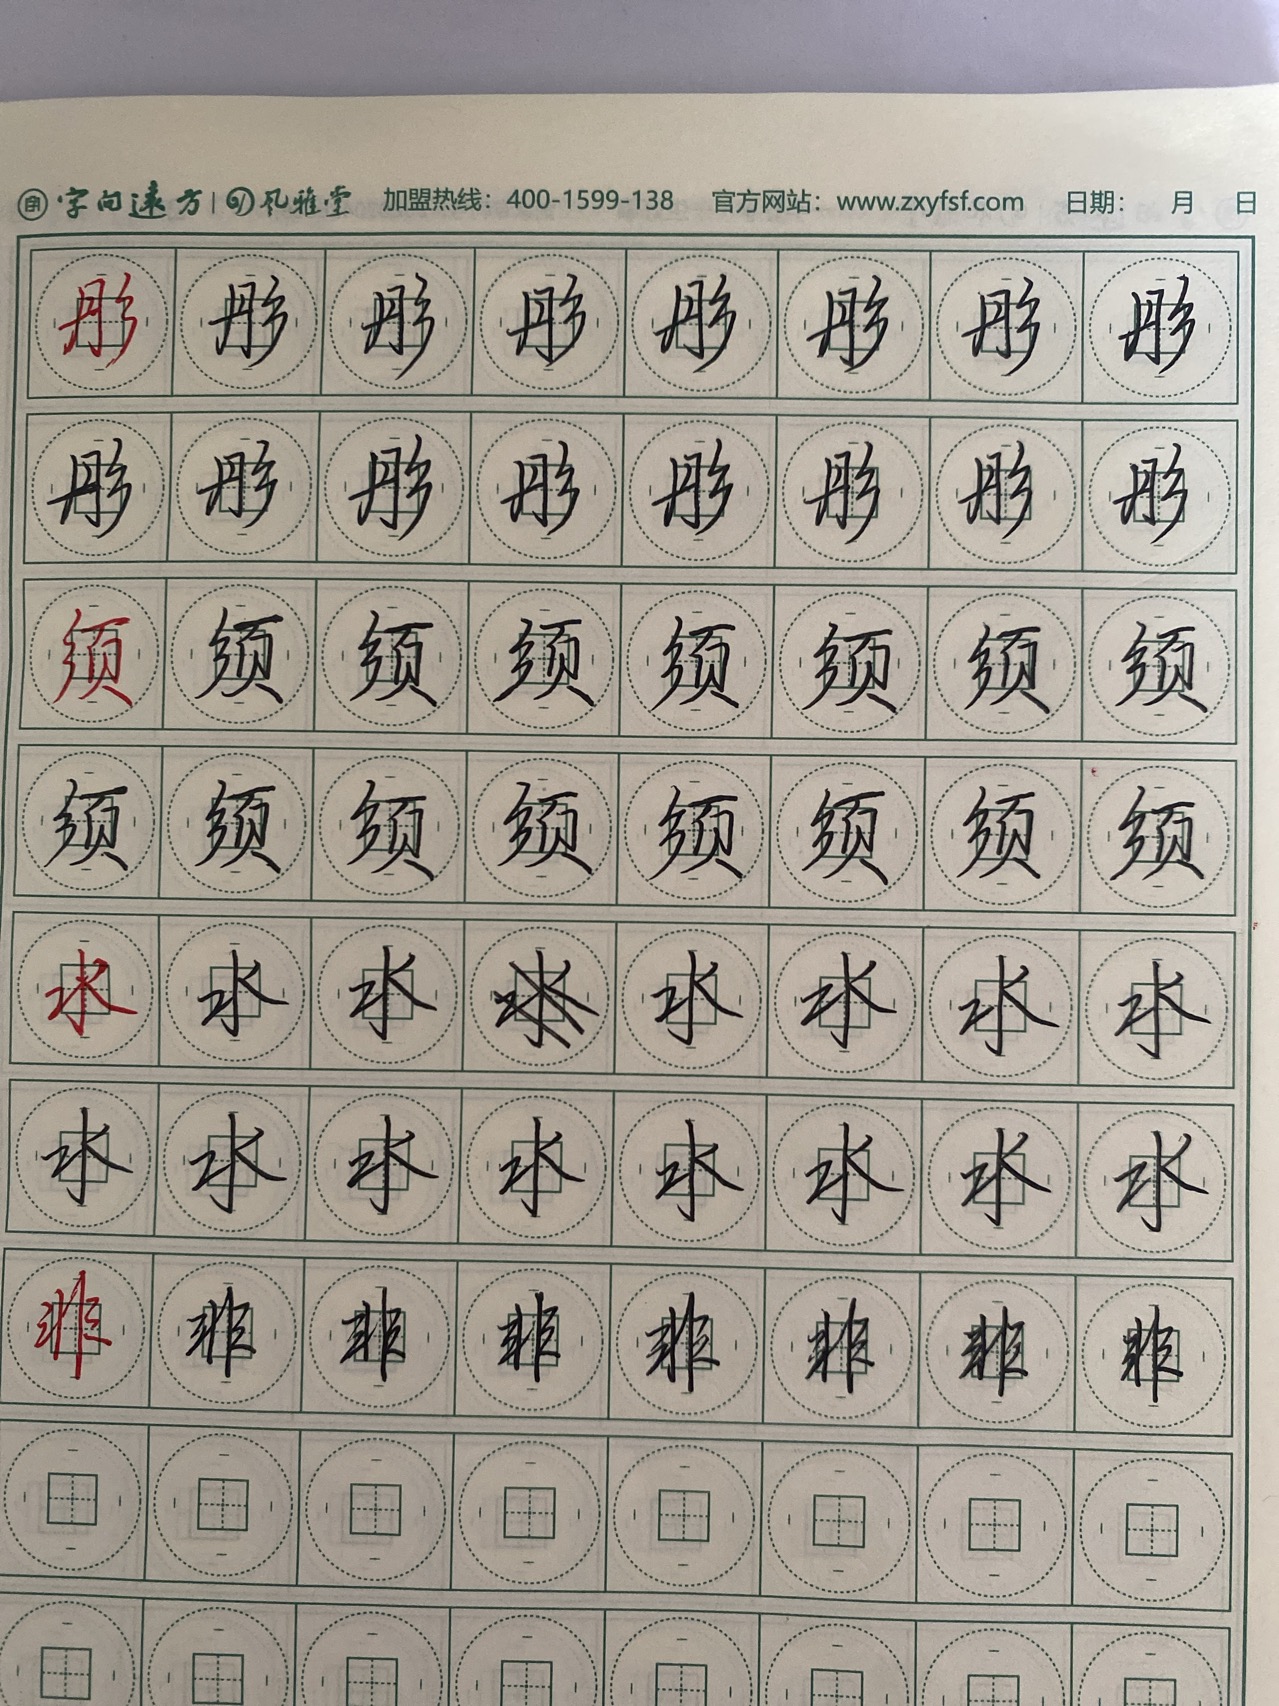 字向遠方 | 风雅堂 加盟热线：400-1599-138 官方网站：www.zxyfsf.com 日期： 月 日
彤 彤 彤 彤 彤 彤 彤 彤
彤 彤 彤 彤 彤 彤 彤 彤
须 须 须 须 须 须 须 须
须 须 须 须 须 须 须 须
水 水 水 水 水 水 水
水 水 水 水 水 水 水 水
非 非 非 非 非 非 非 非